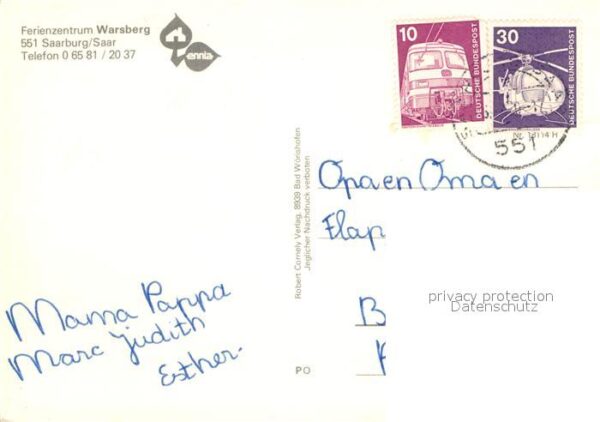 Ferienzentrum Warsberg
551 Saarburg/Saar
Telefon 0 65 81 / 20 37
ennia
10
DEUTSCHE BUNDESPOST
30
DEUTSCHE BUNDESPOST
551
Opa en Oma en
Flap
B
privacy protection
Datenschutz
Mama Pappa
Marc Judith
Esther.
Robert Cornely Verlag, 8939 Bad Wörishofen
Jeglicher Nachdruck verboten
PO